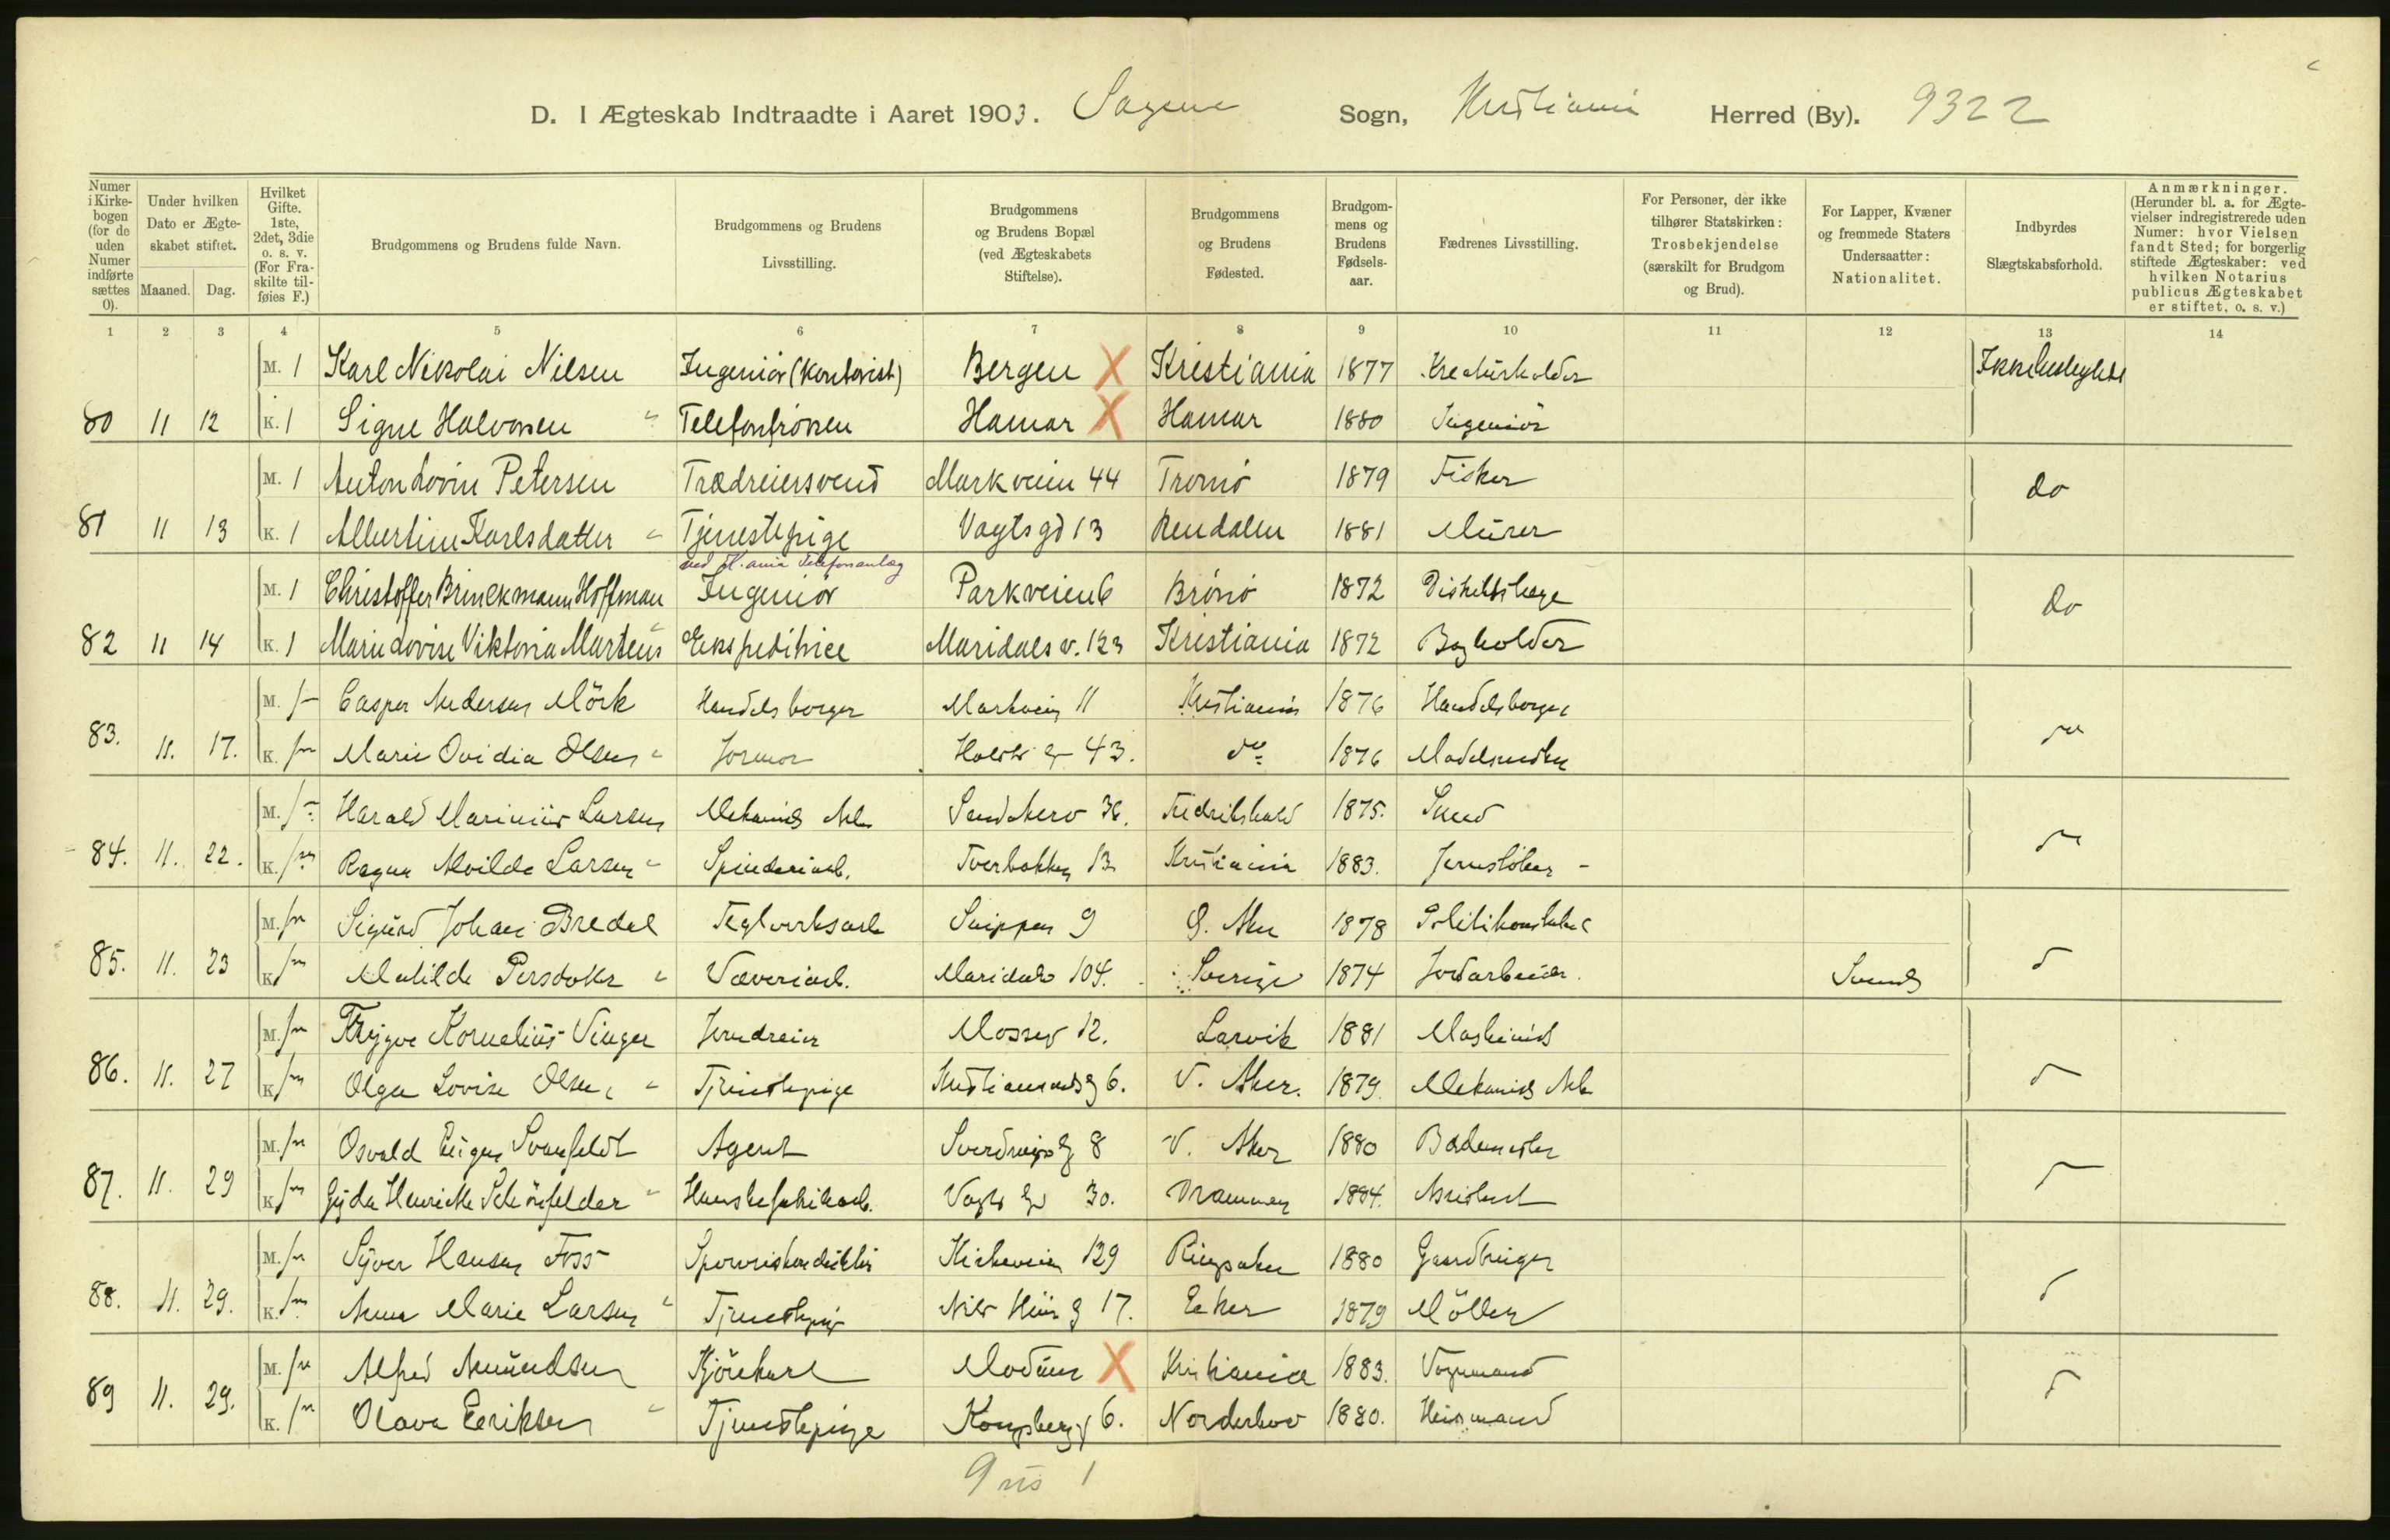 D. I Ægteskab Indtraadte i Aaret 1903. Sagene Sogn, Kristiania Herred (By). 9322
Numer i Kirkebogen (for de uden Numer indførte sættes 0).
Under hvilken Dato er Ægteskabet stiftet.
Maaned. Dag.
Hvilket Gifte. 1ste, 2det, 3die o. s. v. (For Fraskilte tilføies F.)
Brudgommens og Brudens fulde Navn.
Brudgommens og Brudens Livsstilling.
Brudgommens og Brudens Bopæl (ved Ægteskabets Stiftelse).
Brudgommens og Brudens Fødested.
Brudgommens og Brudens Fødselsaar.
Fædrenes Livsstilling.
For Personer, der ikke tilhører Statskirken: Trosbekjendelse (særskilt for Brudgom og Brud).
For Lapper, Kvæner og fremmede Staters Undersaatter: Nationalitet.
Indbyrdes Slægtskabsforhold.
Anmærkninger. (Herunder bl. a. for Ægtevielser indregistrerede uden Numer: hvor Vielsen fandt Sted; for borgerlig stiftede Ægteskaber: ved hvilken Notarius publicus Ægteskabet er stiftet, o. s. v.)
1 2 3 4 5 6 7 8 9 10 11 12 13 14
M. 1 Karl Nikolai Nilsen Ingeniör (Kontorist) Bergen X Kristiania 1877 Kreaturholder Ikke beslegtede
80 11 12 K. 1 Signe Halvorsen " Telefonfröken Hamar X Hamar 1880 Ingeniör
M. 1 Anton Lovin Petersen Trædreiersvend Markveien 44 Tromö 1879 Fisker do
81 11 13 K. 1 Albertine Karlsdatter " Tjenestepige Vogtsgd 13 Rendalen 1881 Murer
ved Kr.ania Telefonanlæg
M. 1 Christoffer Brinckmann Hoffman Ingeniör Parkveien 6 Brönö 1872 Distriktslæge do
82 11 14 K. 1 Marie Lovise Viktoria Martens " Ekspeditrice Maridals v. 123 Kristiania 1872 Bogholder
M. Casper Andersen Mörk Handelsborger Markvein 11 Kristiania 1876 Handelsborger
83. 11. 17. K. Marie Ovidia Olsen " Jormor Holsts g 43. do 1876 Modelsnedker
M. Harald Marinius Larsen Mekanisk Arb Sandakerv 36. Fredrikshald 1875. Smed
84. 11. 22. K. Ragna Alvilde Larsen " Spinderiarb. Tverbakken 13 Kristiania 1883. Jernstöber
M. Sigurd Johan Bredel Teglverksarb Snippen 9 Ö. Aker 1878 Politikonstabel
85. 11. 23 K. Matilde Persdotter " Væveriarb. Maridalsv 104. Sverige 1874 Jordarbeider. Svensk
M. Trygve Kornelius Vinger Jerndreier Mossev 12. Larvik 1881 Maskinist
86. 11. 27 K. Olga Lovise Olsen " Tjenestepige Kristiansandsg 6. V. Aker. 1879. Mekanisk Arb
M. Osvald Eugen Svanfeldt Agent Sverdrups g 8 V. Aker 1880 Bademester
87. 11. 29 K. Gyda Henriette Schönfelder " Hanskefabrikarb. Vogts gd 30. Drammen 1884. Assistent
M. Syver Hansen Foss Sporveiskonduktör Kirkeveien 129 Ringsaker 1880 Gaardbruger
88. 11. 29. K. Anna Marie Larsen " Tjenestepige Nils Huus g 17. Eeker 1879 Möller
M. Alfred Amundsen Kjörekarl Modum X Kristiania 1883. Vognmand
89 11. 29. K. Olava Eeriksen " Tjenestepige Kongsberg g 6. Norderhov 1880. Heismand